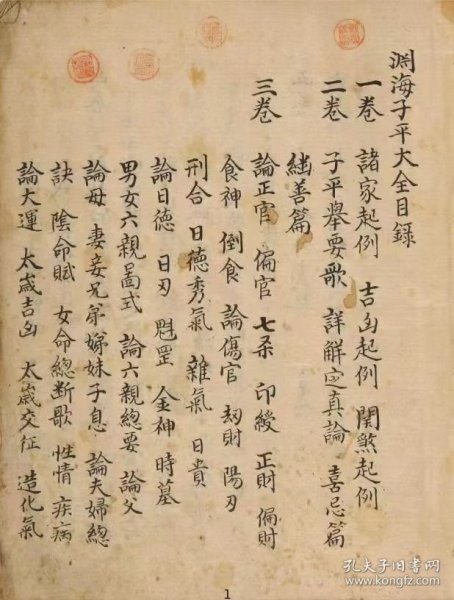 渊海子平大全目録
一卷 諸家起例 吉凶起例 関煞起例
二卷 子平舉要歌 詳解定真論 喜忌篇
継善篇
三卷 論正官 偏官 七杀 印綬 正財 偏財
食神 倒食 論傷官 刼財 陽刃
刑合 日德秀氣 雜氣 日貴
論日德 日刃 魁罡 金神 時墓
男女六親啚式 論六親總要 論父
論母 妻妾兄弟娣妹子息 論夫婦總
訣 陰命賦 女命總断歌 性情 疾病
論大運 太歲吉凶 太歲交征 造化氣
1
孔夫子旧书网
www.kongfz.com